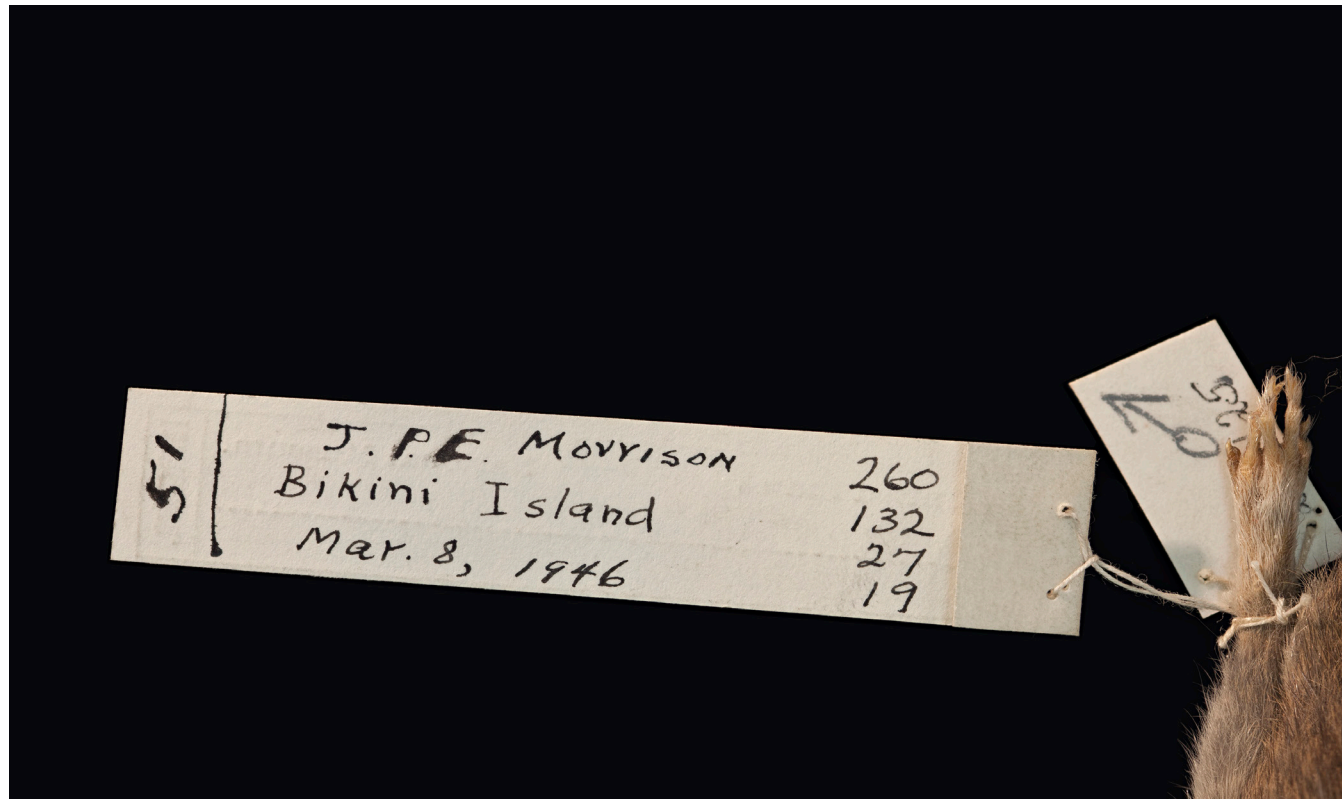 51
J. P. E. Morrison
Bikini Island
Mar. 8, 1946
260
132
27
19
♂